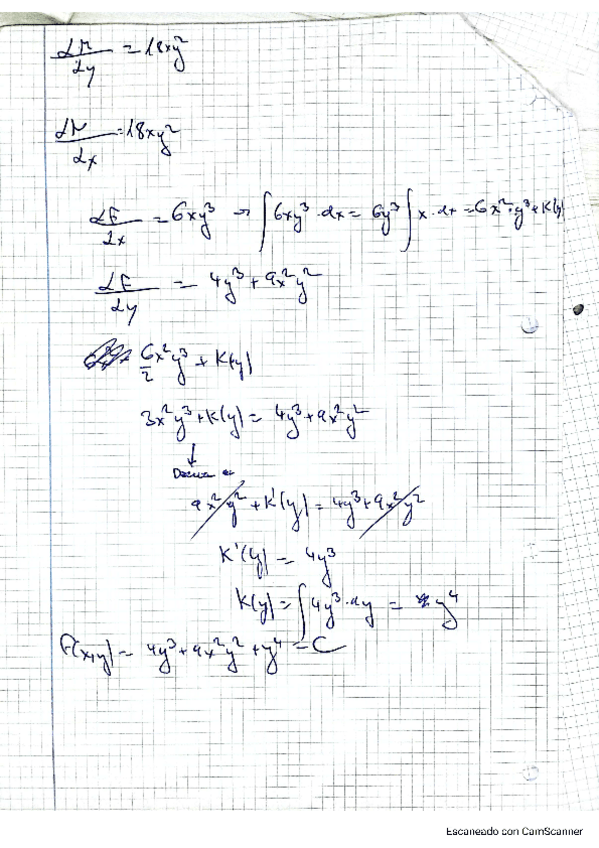 ∂M/∂y = 18xy²
∂N/∂x = 18xy²
∂F/∂x = 6xy³ → ∫6xy³·dx = 6y³∫x·dx = 6x²·y³+K(y)
∂F/∂y = 4y³+9x²y²
6/2 x²y³ + K(y)
3x²y³+K(y) = 4y³+9x²y²
↓
9x²y² + K'(y) = 4y³+9x²y²
K'(y) = 4y³
K(y) = ∫4y³·dy = y⁴
F(x,y) = 4y³+9x²y²+y⁴ = C
Escaneado con CamScanner